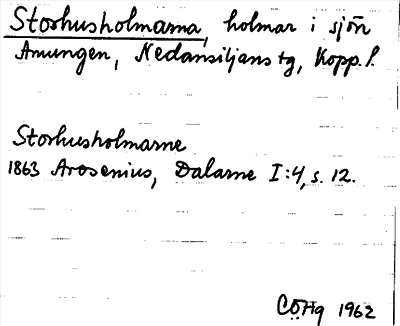 Storhusholmarna, holmar i sjön
Amungen, Nedansiljans tg, Kopp. l.
Storhusholmarne
1863 Arosenius, Dalarne I:4, s. 12.
CÖHg 1962